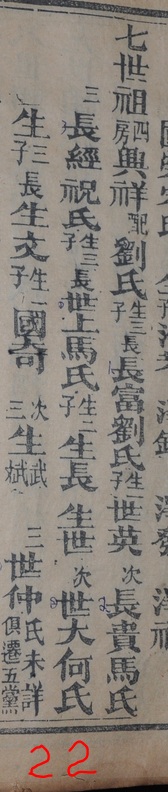 七世祖四房興祥配劉氏生三子長長富劉氏生一子世英次長貴馬氏
三長經祝氏生三子長世上馬氏生二子生長生世次世大何氏
生三子長生文生一子國奇次生武三生斌三世仲氏未詳俱遷五黨
22